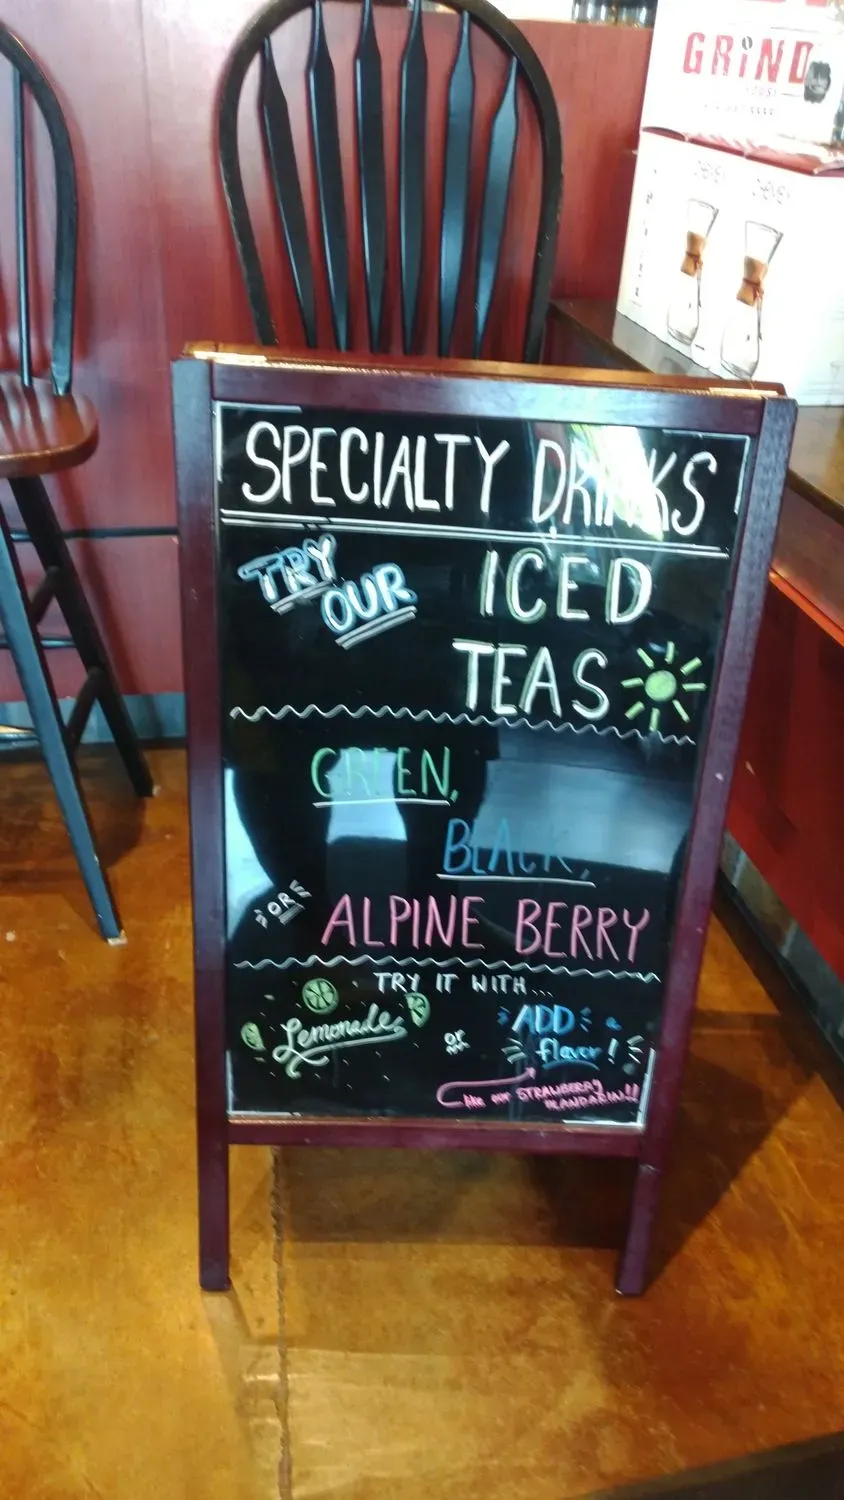 GRiND
CHEMEX CHEMEX
SPECIALTY DRINKS
TRY OUR
ICED
TEAS
GREEN,
BLACK,
OR
ALPINE BERRY
TRY IT WITH...
Lemonade
or
ADD a
flavor!
like our STRAWBERRY
MANDARIN!!